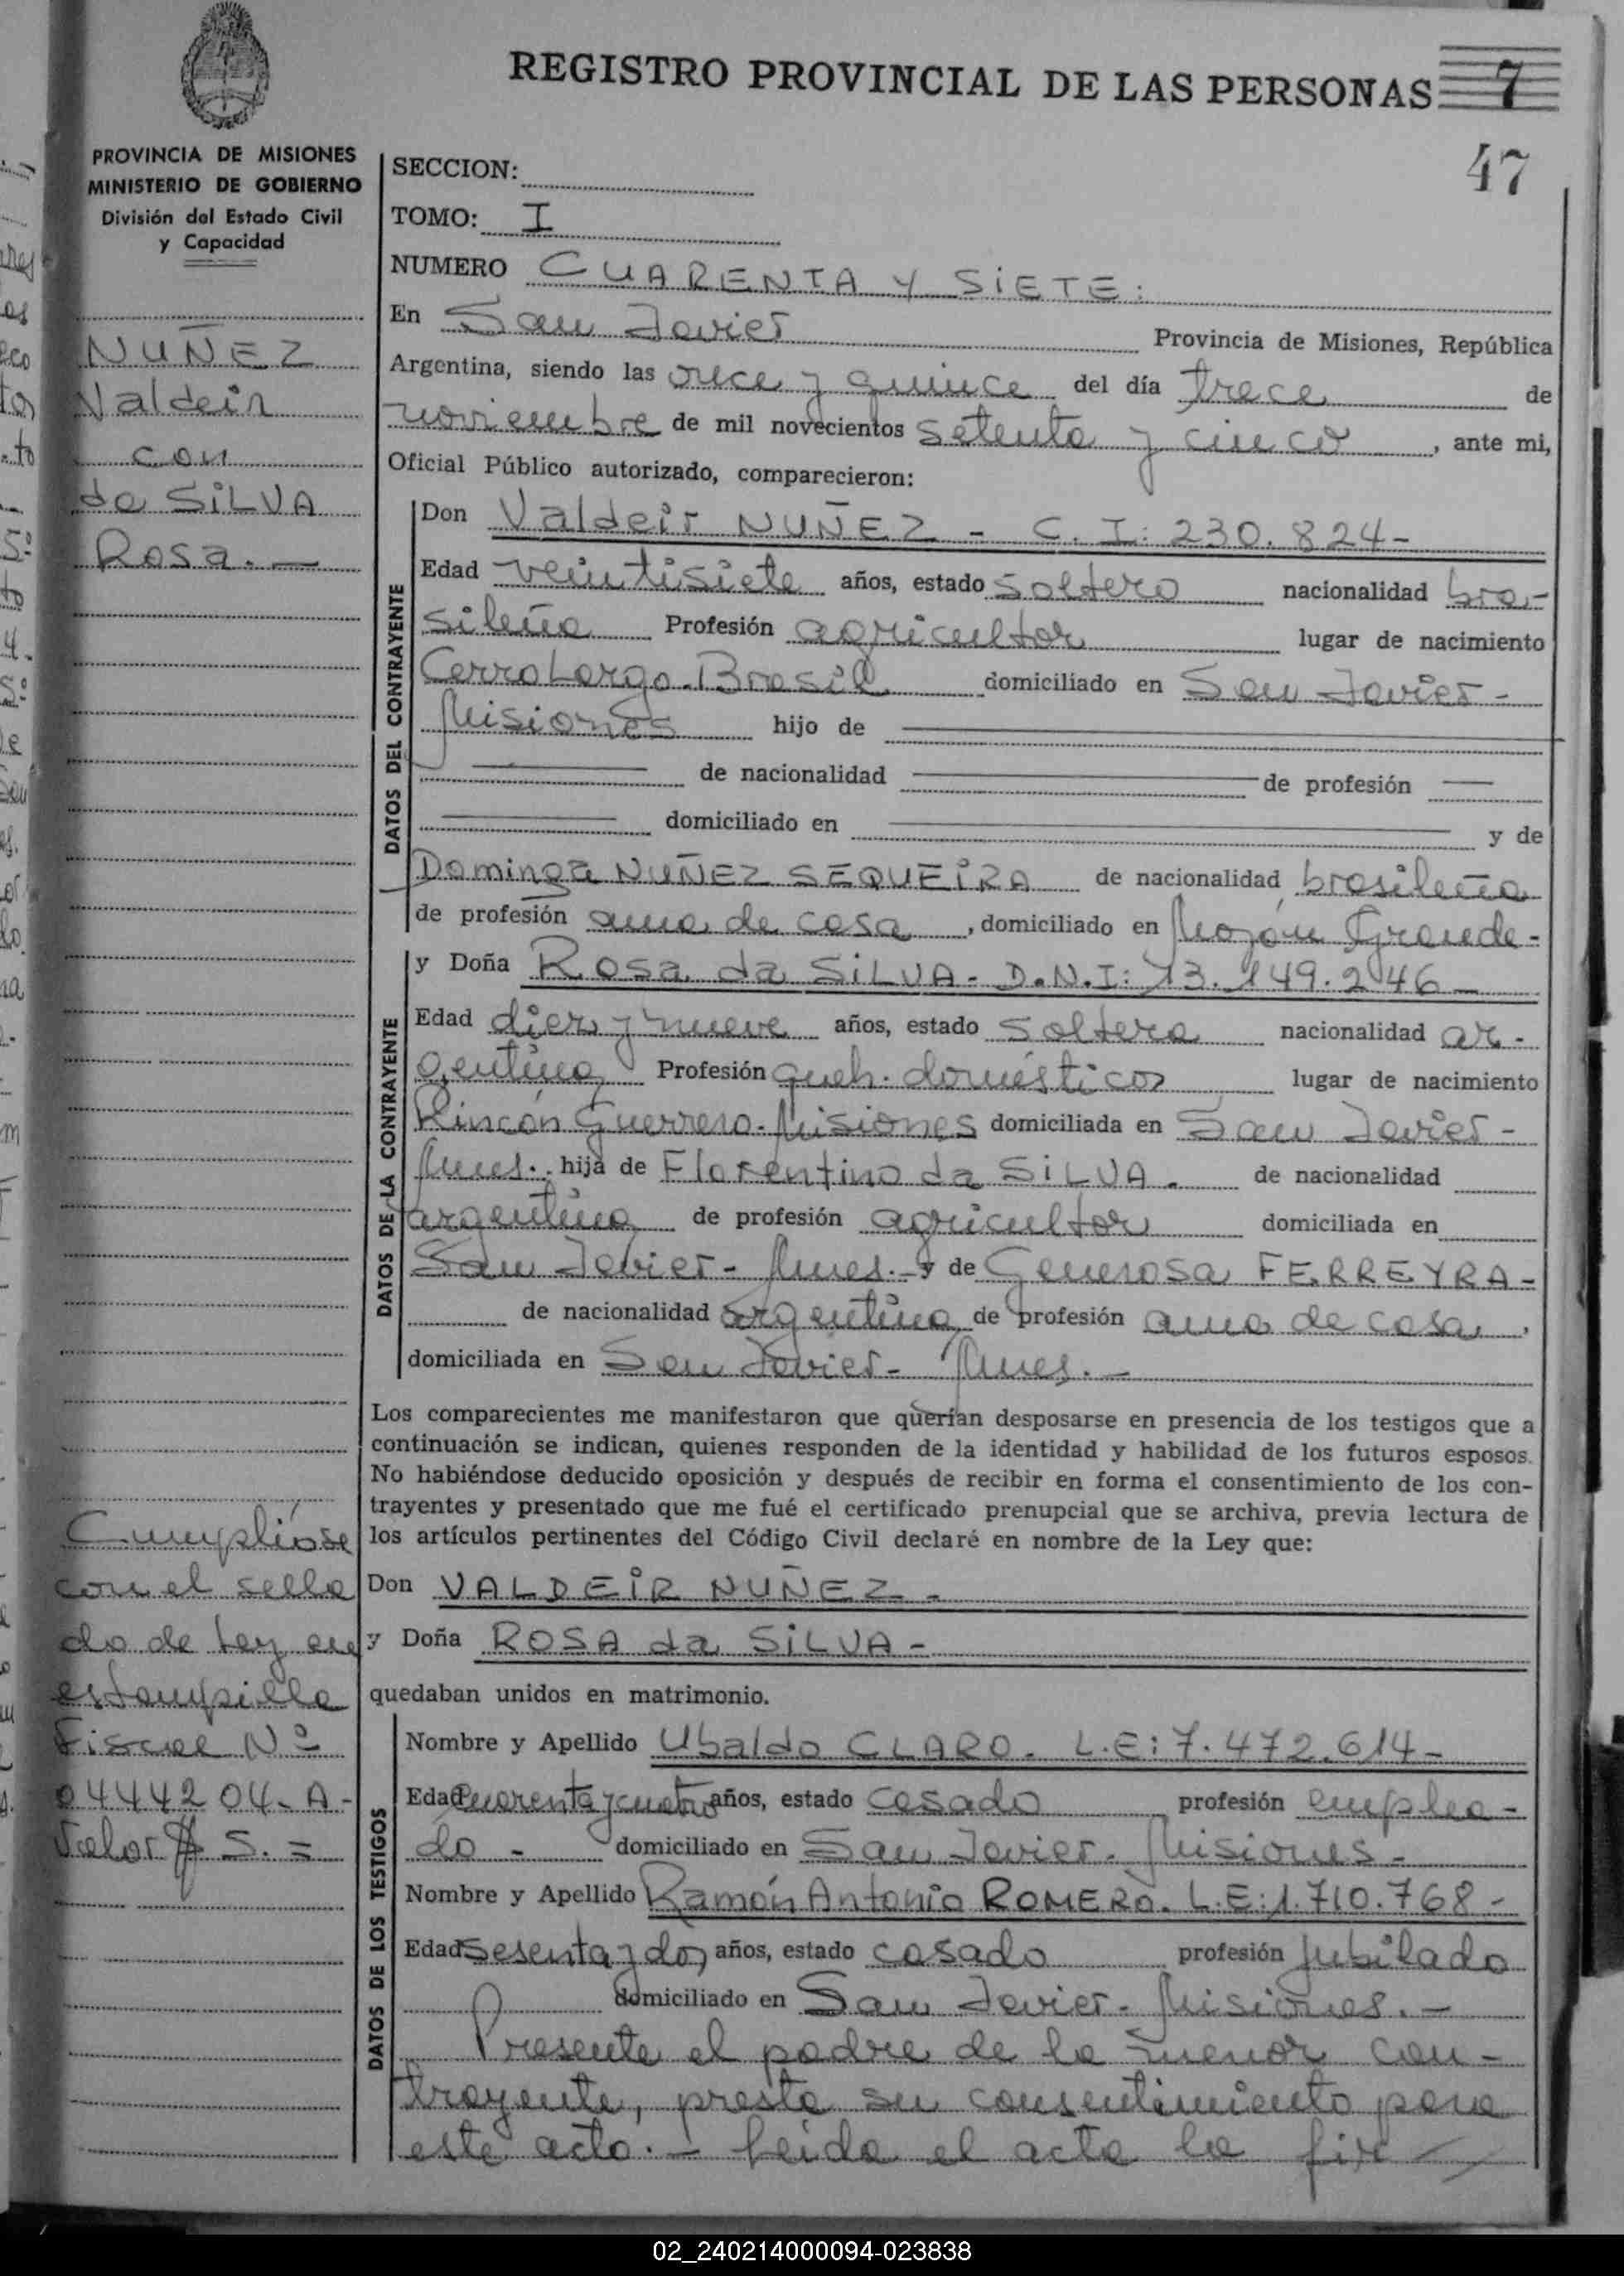 REGISTRO PROVINCIAL DE LAS PERSONAS 7
47
PROVINCIA DE MISIONES
MINISTERIO DE GOBIERNO
División del Estado Civil
y Capacidad
NUÑEZ
Valdeir
con
da SILVA
Rosa.-
Cumplióse
con el sella
do de Ley en
estampilla
Fiscal Nº
0444204-A-
Valor $ 5.=
SECCION:
TOMO: I
NUMERO CUARENTA Y SIETE:
En San Javier Provincia de Misiones, República
Argentina, siendo las once y quince del día trece de
noviembre de mil novecientos setenta y cinco, ante mi,
Oficial Público autorizado, comparecieron:
DATOS DEL CONTRAYENTE
Don Valdeir NUÑEZ - C. I: 230.824-
Edad veintisiete años, estado soltero nacionalidad bra-
sileña Profesión agricultor lugar de nacimiento
Cerro Largo-Brasil domiciliado en San Javier-
Misiones hijo de
de nacionalidad de profesión
domiciliado en y de
Dominga NUÑEZ SEQUEIRA de nacionalidad brasileña
de profesión ama de casa, domiciliado en Mojón Grande-
DATOS DE LA CONTRAYENTE
y Doña Rosa da SILVA - D.N.I: 13.149.246-
Edad diez y nueve años, estado soltera nacionalidad ar-
gentina Profesión queh. domésticos lugar de nacimiento
Rincón Guerrero-Misiones domiciliada en San Javier-
Mnes. hija de Florentino da SILVA. de nacionalidad
argentina de profesión agricultor domiciliada en
San Javier- Mnes.- y de Generosa FERREYRA-
de nacionalidad argentina de profesión ama de casa,
domiciliada en San Javier- Mnes.-
Los comparecientes me manifestaron que querían desposarse en presencia de los testigos que a
continuación se indican, quienes responden de la identidad y habilidad de los futuros esposos.
No habiéndose deducido oposición y después de recibir en forma el consentimiento de los con-
trayentes y presentado que me fué el certificado prenupcial que se archiva, previa lectura de
los artículos pertinentes del Código Civil declaré en nombre de la Ley que:
Don VALDEIR NUÑEZ-
y Doña ROSA da SILVA-
quedaban unidos en matrimonio.
DATOS DE LOS TESTIGOS
Nombre y Apellido Ubaldo CLARO. L.E: 7.472.614-
Edad cuarenta y cuatro años, estado casado profesión emplea-
do - domiciliado en San Javier- Misiones-
Nombre y Apellido Ramón Antonio ROMERO. L.E: 1.710.768-
Edad sesenta y dos años, estado casado profesión jubilado
domiciliado en San Javier- Misiones.-
Presente el padre de la menor con-
trayente, presta su consentimiento para
este acto.- Leída el acta la fir
02_240214000094-023838